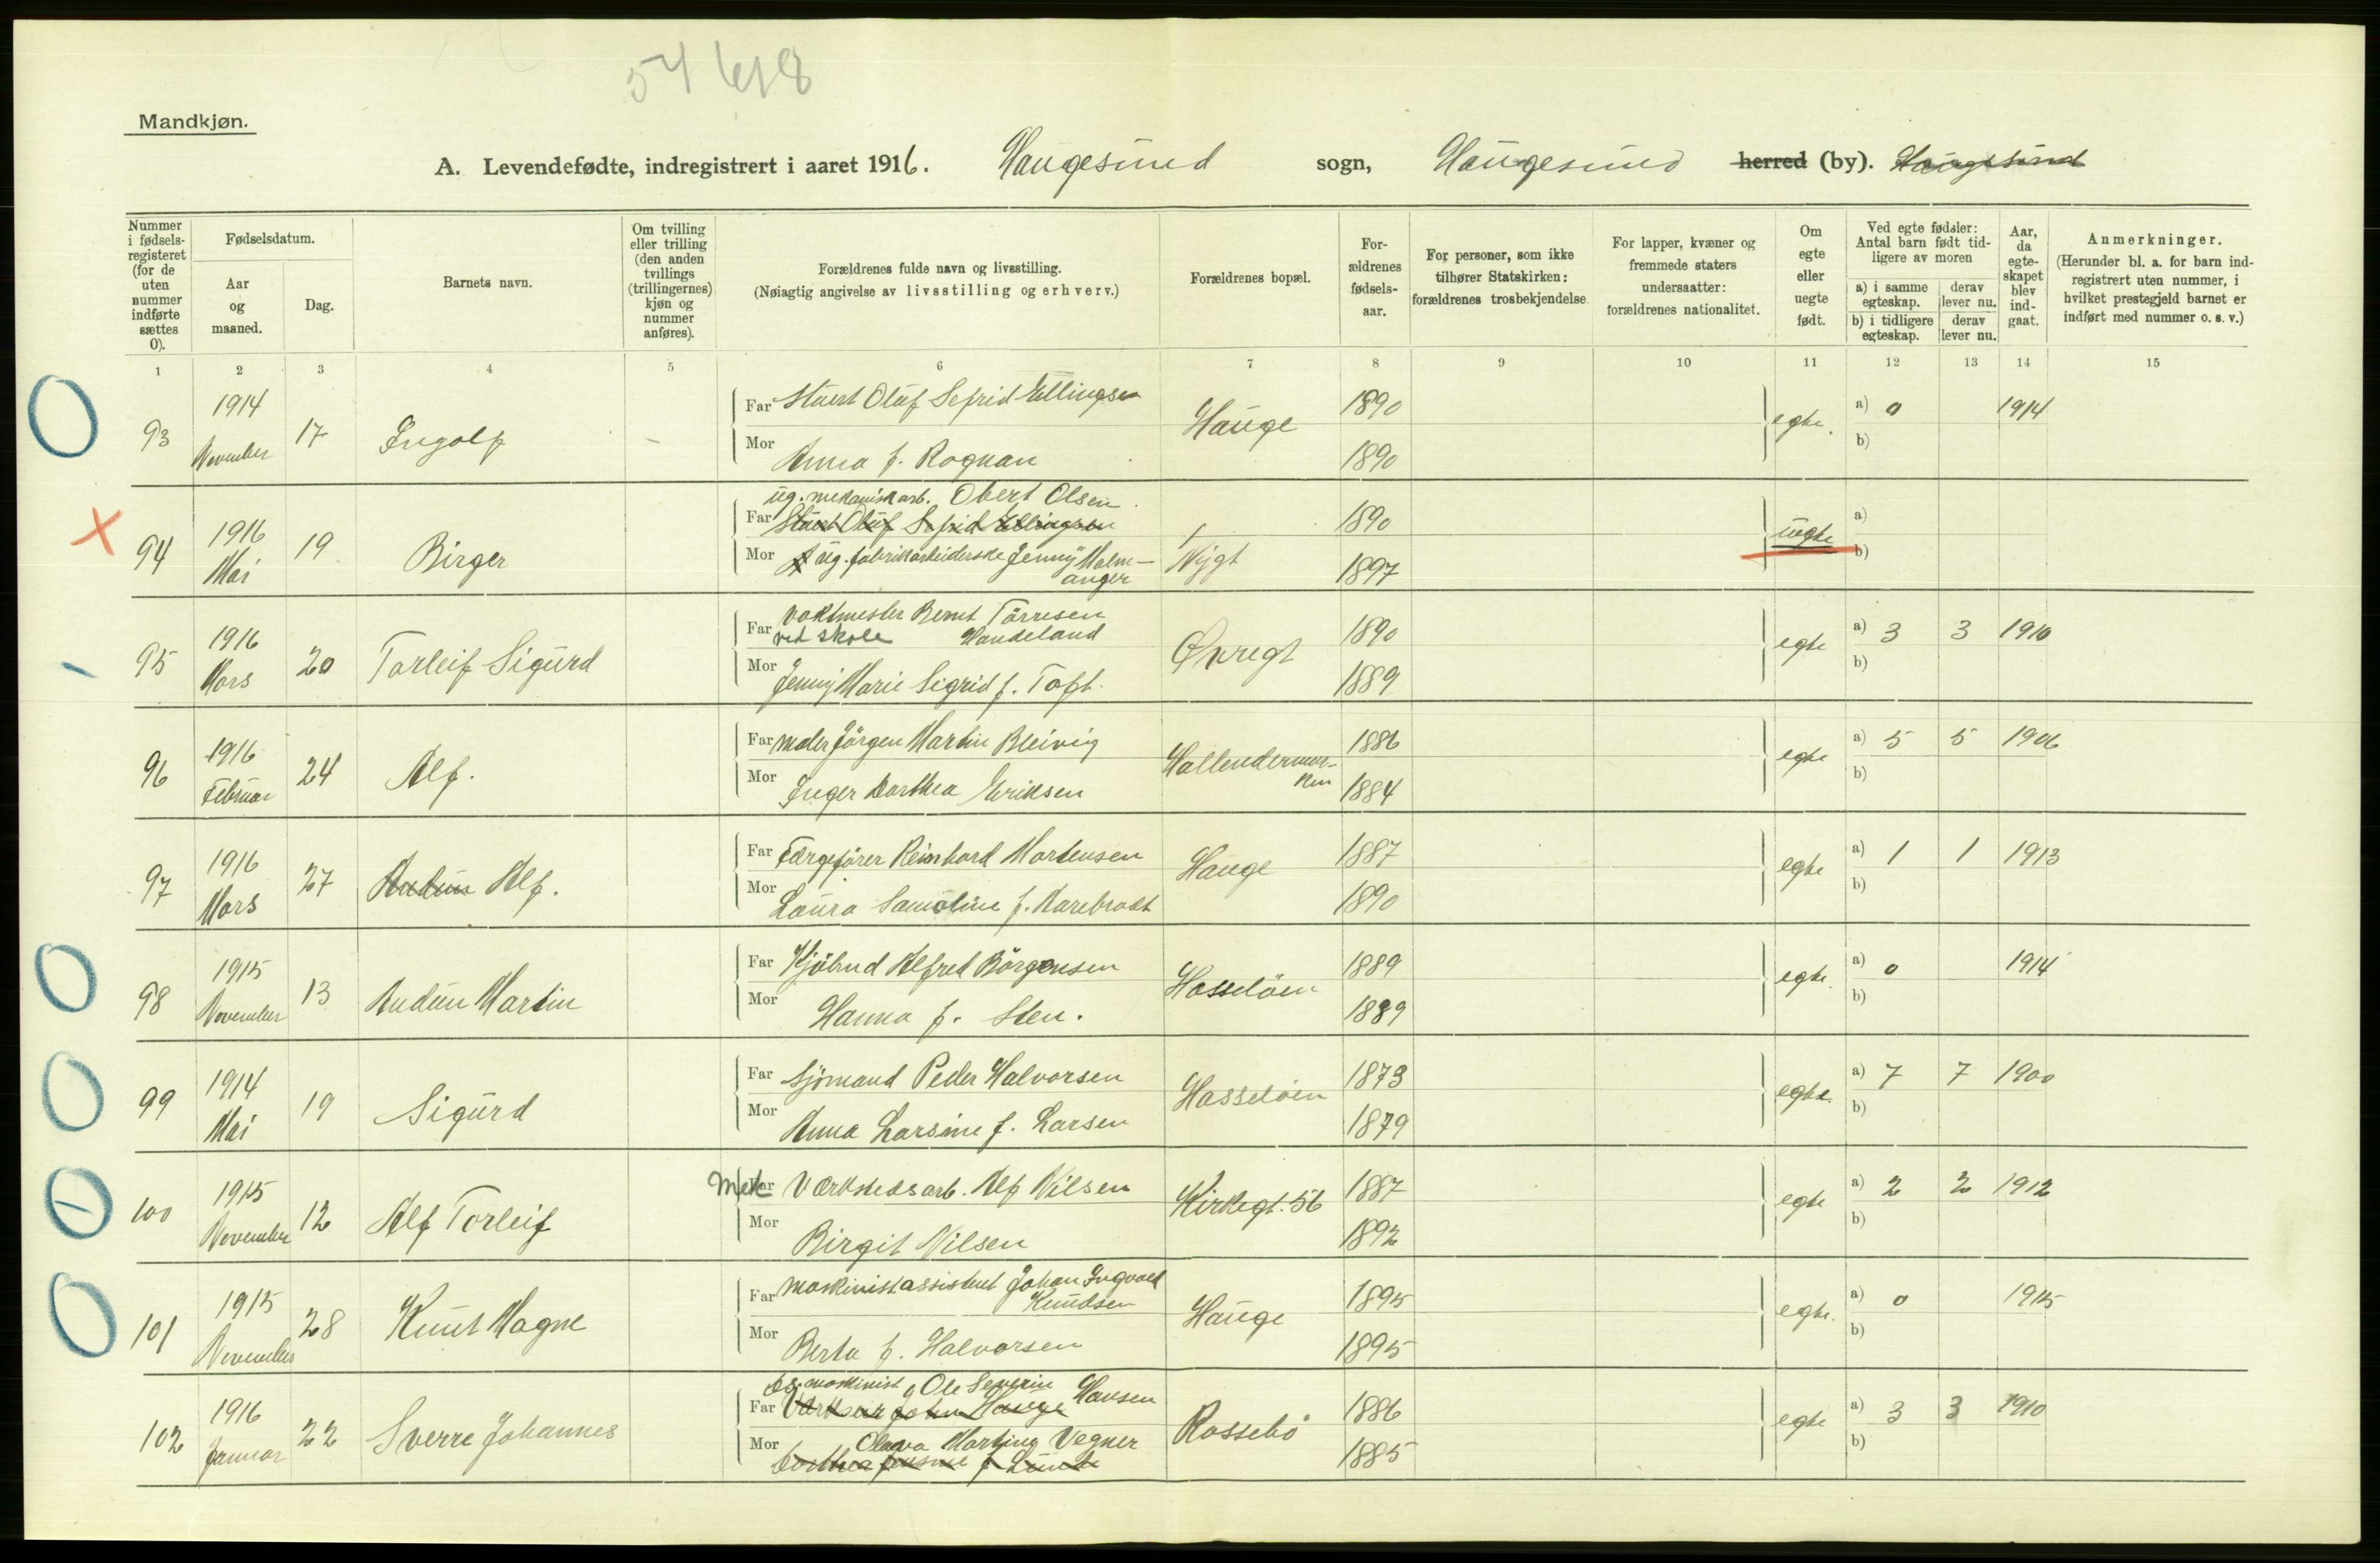 54 618
Mandkjøn.
A. Levendefødte, indregistrert i aaret 1916. Haugesund sogn, Haugesund herred (by). Haugesund
Nummer i fødsels-registeret (for de uten nummer indførte sættes 0).
Fødselsdatum.
Aar og maaned.
Dag.
Barnets navn.
Om tvilling eller trilling (den anden tvillings (trillingernes) kjøn og nummer anføres).
Forældrenes fulde navn og livsstilling.
(Nøiagtig angivelse av livsstilling og erhverv.)
Forældrenes bopæl.
For-ældrenes fødsels-aar.
For personer, som ikke tilhører Statskirken: forældrenes trosbekjendelse
For lapper, kvæner og fremmede staters undersaatter: forældrenes nationalitet.
Om egte eller uegte født.
Ved egte fødsler: Antal barn født tid-ligere av moren
a) i samme egteskap.
derav lever nu.
b) i tidligere egteskap.
derav lever nu.
Aar, da egte-skapet blev ind-gaat.
Anmerkninger.
(Herunder bl. a. for barn ind-registrert uten nummer, i hvilket prestegjeld barnet er indført med nummer o. s. v.)
1 2 3 4 5 6 7 8 9 10 11 12 13 14 15
93 1914 November 17 Ingolf -
Far Stuert Oluf Sefrid Ellingsen Hauge 1890 egte. a) 0 1914
Mor Anna f. Rognan 1890 b)
94 1916 Mai 19 Birger
ug. mekanisk arb. Obert Olsen
Far Stuert Oluf Sefrid Ellingsen 1890 uegte a)
Mor ug. fabrikarbeiderske Jenny Malm-anger Nygt 1897 b)
95 1916 Mars 20 Torleif Sigurd
Far Vaktmester Bernt Tørresen
ved skole Handeland Øvregt 1890 egte a) 3 3 1910
Mor Jenny Marie Sigrid f. Toft. 1889 b)
96 1916 Februar 24 Alf.
Far maler Jörgen Martin Bleivig 1886 egte a) 5 5 1906
Mor Inger Dorthea Eriksen Hollendermar-ken 1884 b)
97 1916 Mars 27 Audun Alf.
Far Færgefører Reinhard Mortensen Hauge 1887 egte a) 1 1 1913
Mor Laura Samoline f. 1890 b)
98 1915 November 13 Audun Martin
Far Alfred Børgensen Hasseløen 1889 egte. a) 0 1914
Mor Hanna f. Sten. 1889 b)
99 1914 Mai 19 Sigurd
Far Sjömand Peder Halvorsen Hasseløen 1873 egte. a) 7 7 1900
Mor Anna Larsine f. Larsen 1879 b)
100 1915 November 12 Alf Torleif
Mek Far Værkstedsarb. Alf Nilsen Kirkegt. 56 1887 egte a) 2 2 1912
Mor Birgit Nilsen 1892 b)
101 1915 November 28 Knut Magne
Far maskinistassistent Johan Ingvald
Knudsen Hauge 1895 egte. a) 0 1915
Mor Berta f. Halvorsen 1895 b)
102 1916 Januar 22 Sverre Johannes
maskinist Ole Severin Hansen
Far John Hauge Rossebö 1886 egte a) 3 3 1910
Mor Olava Martina Vegner 1885 b)
Dorthea f. Lunde